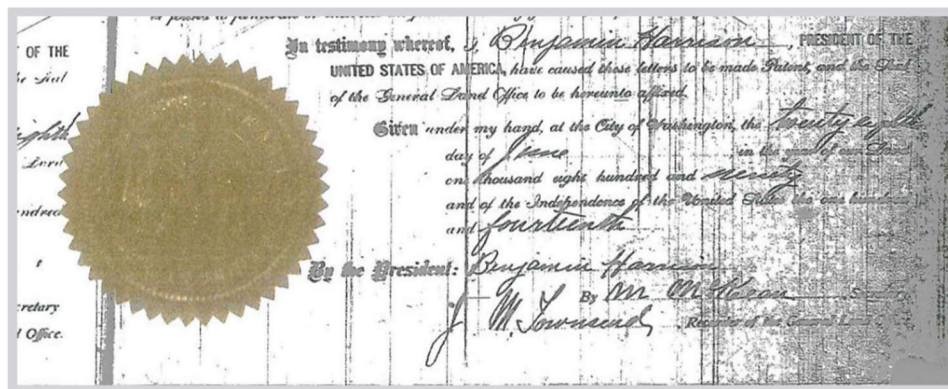 OF THE
In testimony whereof, I Benjamin Harrison, PRESIDENT OF THE
he Seal
UNITED STATES OF AMERICA, have caused these letters to be made Patent, and the Seal
of the General Land Office to be hereunto affixed.
eighth
Given under my hand, at the City of Washington, the twenty eighth
Lord
day of June, in the year of our Lord
one thousand eight hundred and ninety
ndred
and of the Independence of the United States the one hundred
and fourteenth
By the President: Benjamin Harrison
By M. McKean
cretary
J M. Townsend, Recorder of the General Land
d Office.